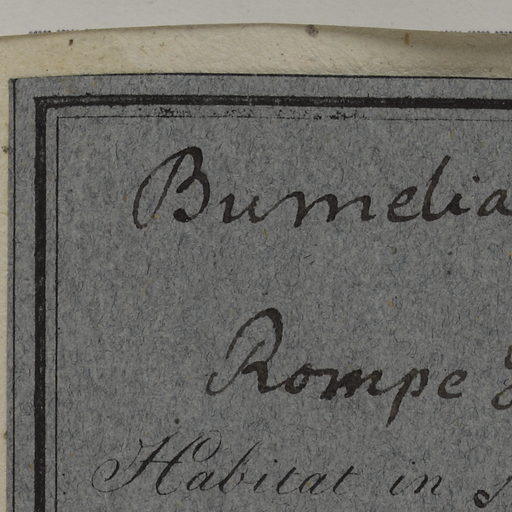 Bumelia
Rompe
Habitat in